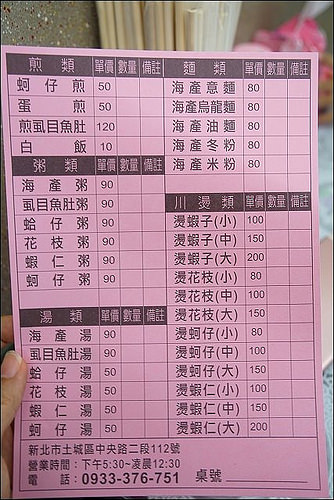 煎類 單價 數量 備註
蚵仔煎 50
蛋煎 50
煎虱目魚肚 120
白飯 10
粥類 單價 數量 備註
海產粥 90
虱目魚肚粥 90
蛤仔粥 90
花枝粥 90
蝦仁粥 90
蚵仔粥 90
湯類 單價 數量 備註
海產湯 90
虱目魚肚湯 90
蛤仔湯 50
花枝湯 50
蝦仁湯 50
蚵仔湯 50
麵類 單價 數量 備註
海產意麵 80
海產烏龍麵 80
海產油麵 80
海產冬粉 80
海產米粉 80
川燙類 單價 數量 備註
燙蝦子(小) 100
燙蝦子(中) 150
燙蝦子(大) 200
燙花枝(小) 80
燙花枝(中) 100
燙花枝(大) 150
燙蚵仔(小) 80
燙蚵仔(中) 100
燙蚵仔(大) 150
燙蝦仁(小) 100
燙蝦仁(中) 150
燙蝦仁(大) 200
新北市土城區中央路二段112號
營業時間：下午5:30~凌晨12:30
電話：0933-376-751 桌號